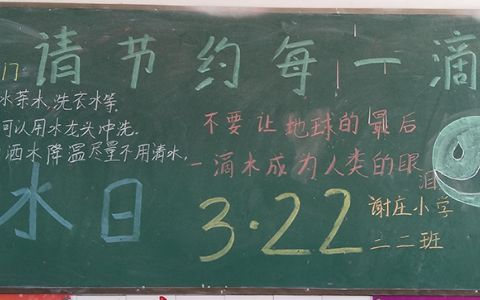 请节约每一滴
水茶水,洗衣水等,
可以用水龙头冲洗.
洒水降温尽量不用清水,
不要让地球的最后
一滴水成为人类的眼
泪
水日
3·22
谢庄小学
二二班